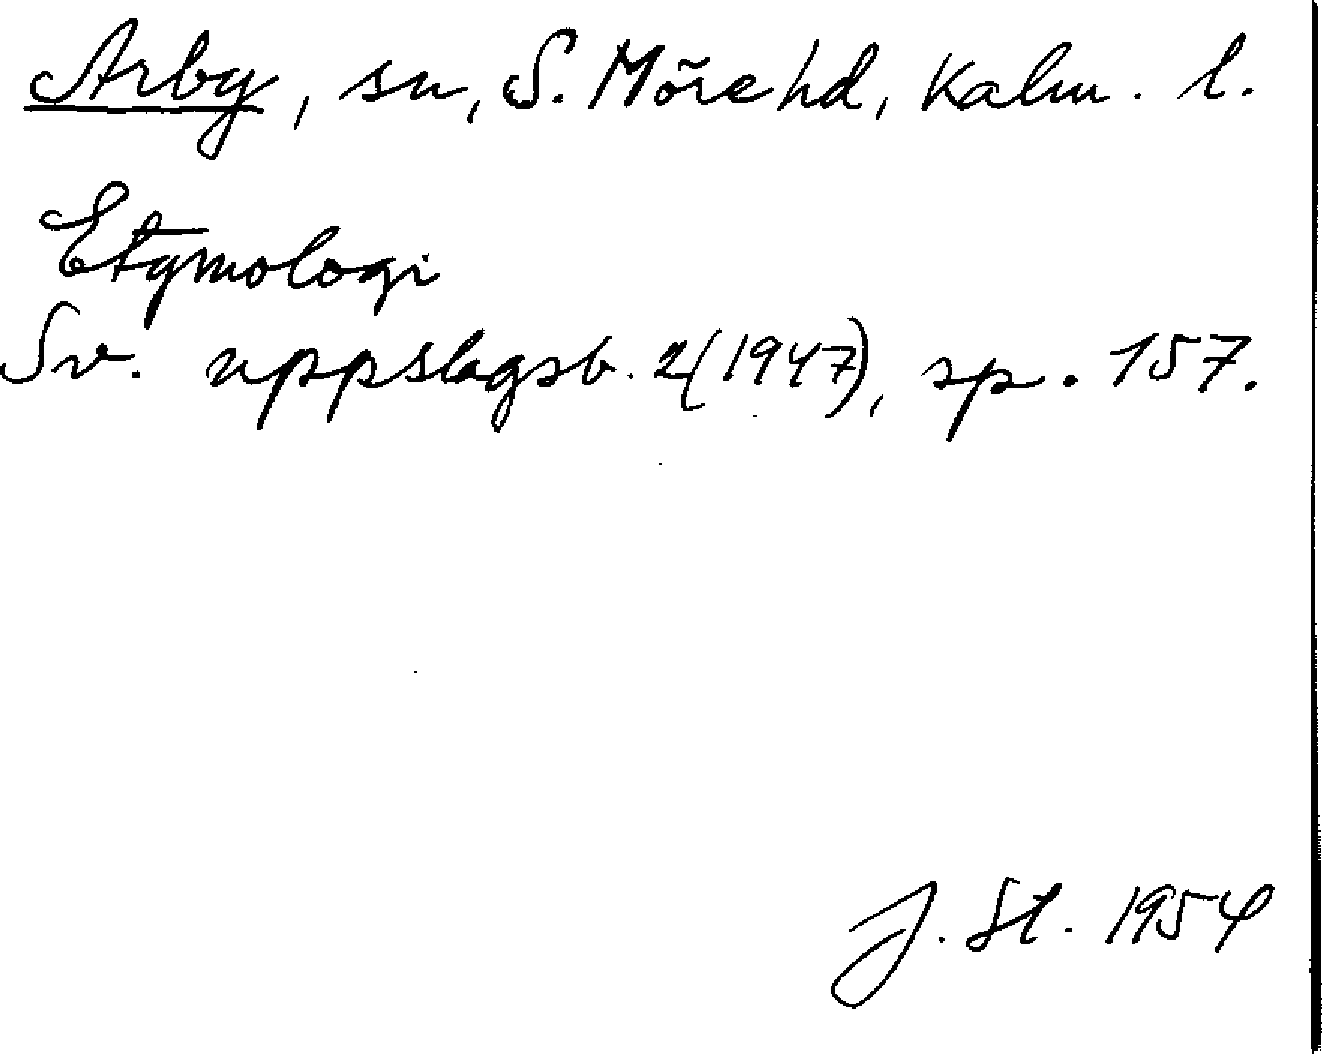 Arby, sn, S. Möre hd, Kalm. l.
Etymologi
Sv. uppslagsb. 2(1947), sp. 157.
J. St. 1954